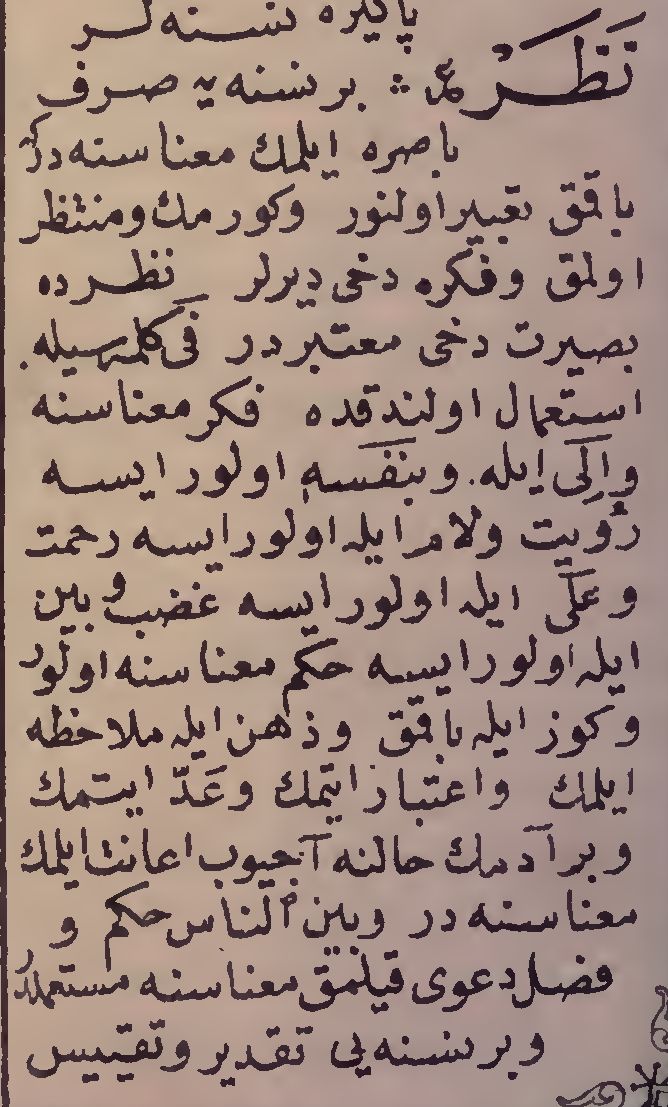 پاكيزه نسنه لر
نَظَرْ ع ؞ بر نسنه یه صرف
باصره ايلمك معناسنه در
باقمق تعبير اولنور وكورمك ومنتظر
اولمق وفكره دخى ديرلر نظرده
بصيرت دخى معتبردر فى كلمه سيله
استعمال اولندقده فكر معناسنه
وإلَى ايله وبنفسه اولور ايسه
رؤيت ولام ايله اولور ايسه رحمت
وعلَى ايله اولور ايسه غضب وبين
ايله اولور ايسه حكم معناسنه اولور
وكوز ايله باقمق وذهن ايله ملاحظه
ايلمك واعتبار ايتمك وعَدّ ايتمك
وبر آدمك حالنه آجيوب اعانت ايلمك
معناسنه در وبين الناس حكم و
فصل دعوى قيلمق معناسنه مستعملدر
وبر نسنه يى تقدير وتقييس